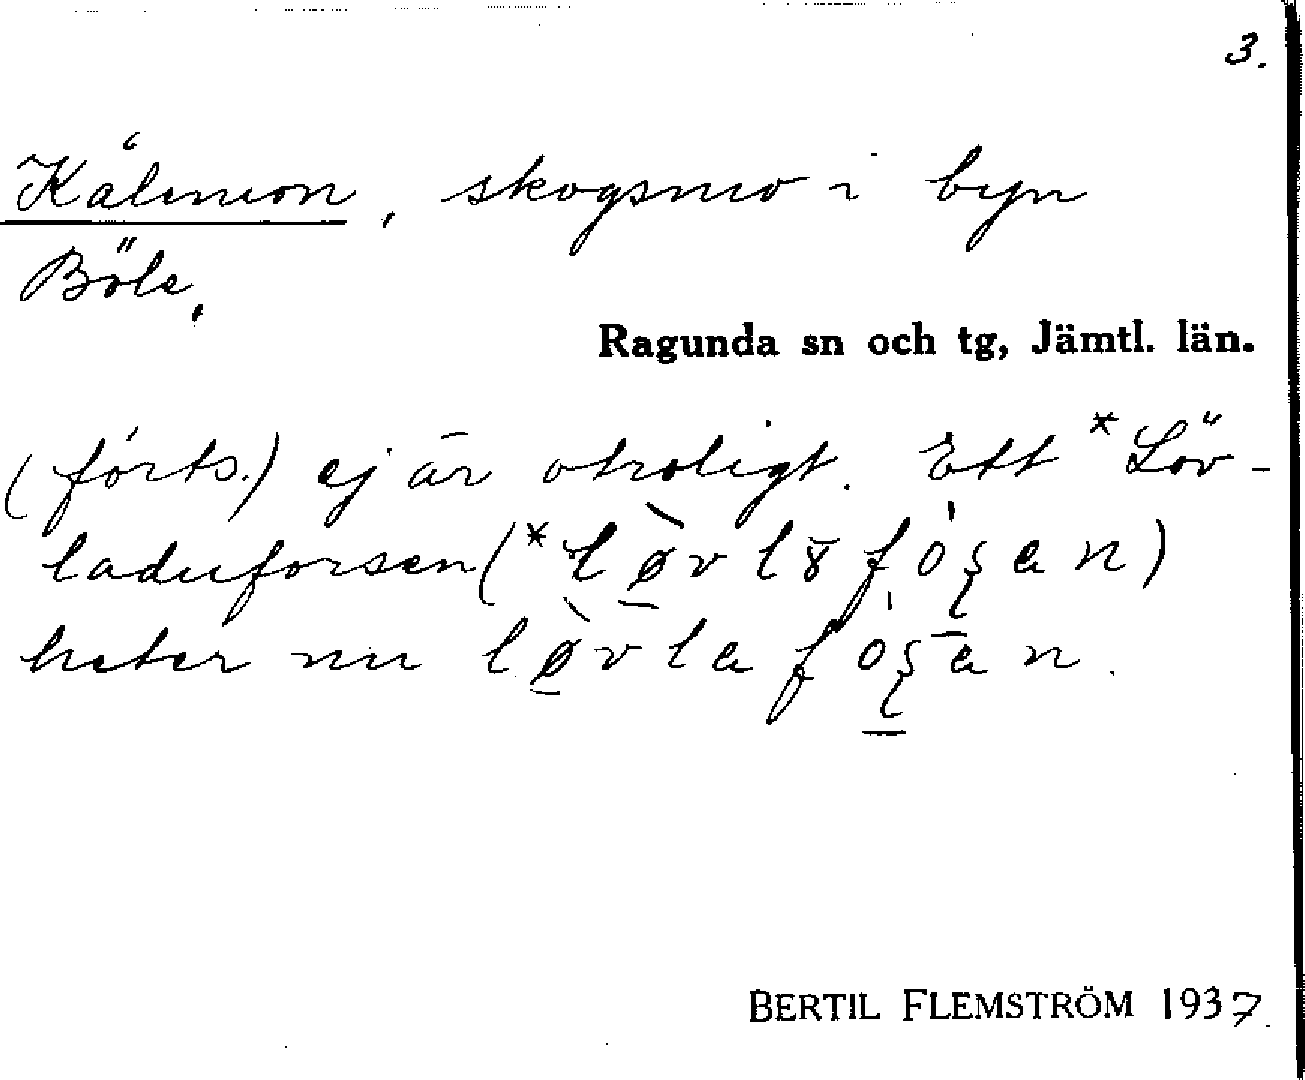 3.
Kålmon, skogsmo i byn
Böle,
Ragunda sn och tg, Jämtl. län.
(förts.) ej är otroligt. Ett *Löv-
laduforsen (*
heter nu
BERTIL FLEMSTRÖM 1937